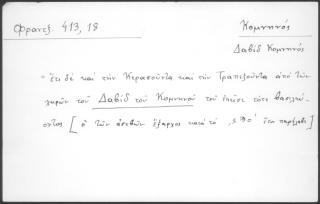 Φραντζ. 413, 18
Κομνηνός
Δαβίδ Κομνηνός
"ἔτι δὲ καὶ τὴν Κερασοῦντα καὶ τὴν Τραπεζοῦντα ἀπὸ τῶν
χειρῶν τοῦ Δαβίδ τοῦ Κομνηνοῦ τοῦ ἐκεῖσε τότε βασιλεύ
οντος [ ὁ τῶν ἀσεβῶν ἔξαρχος κατὰ τὸ ἔτος παρέλαβε]